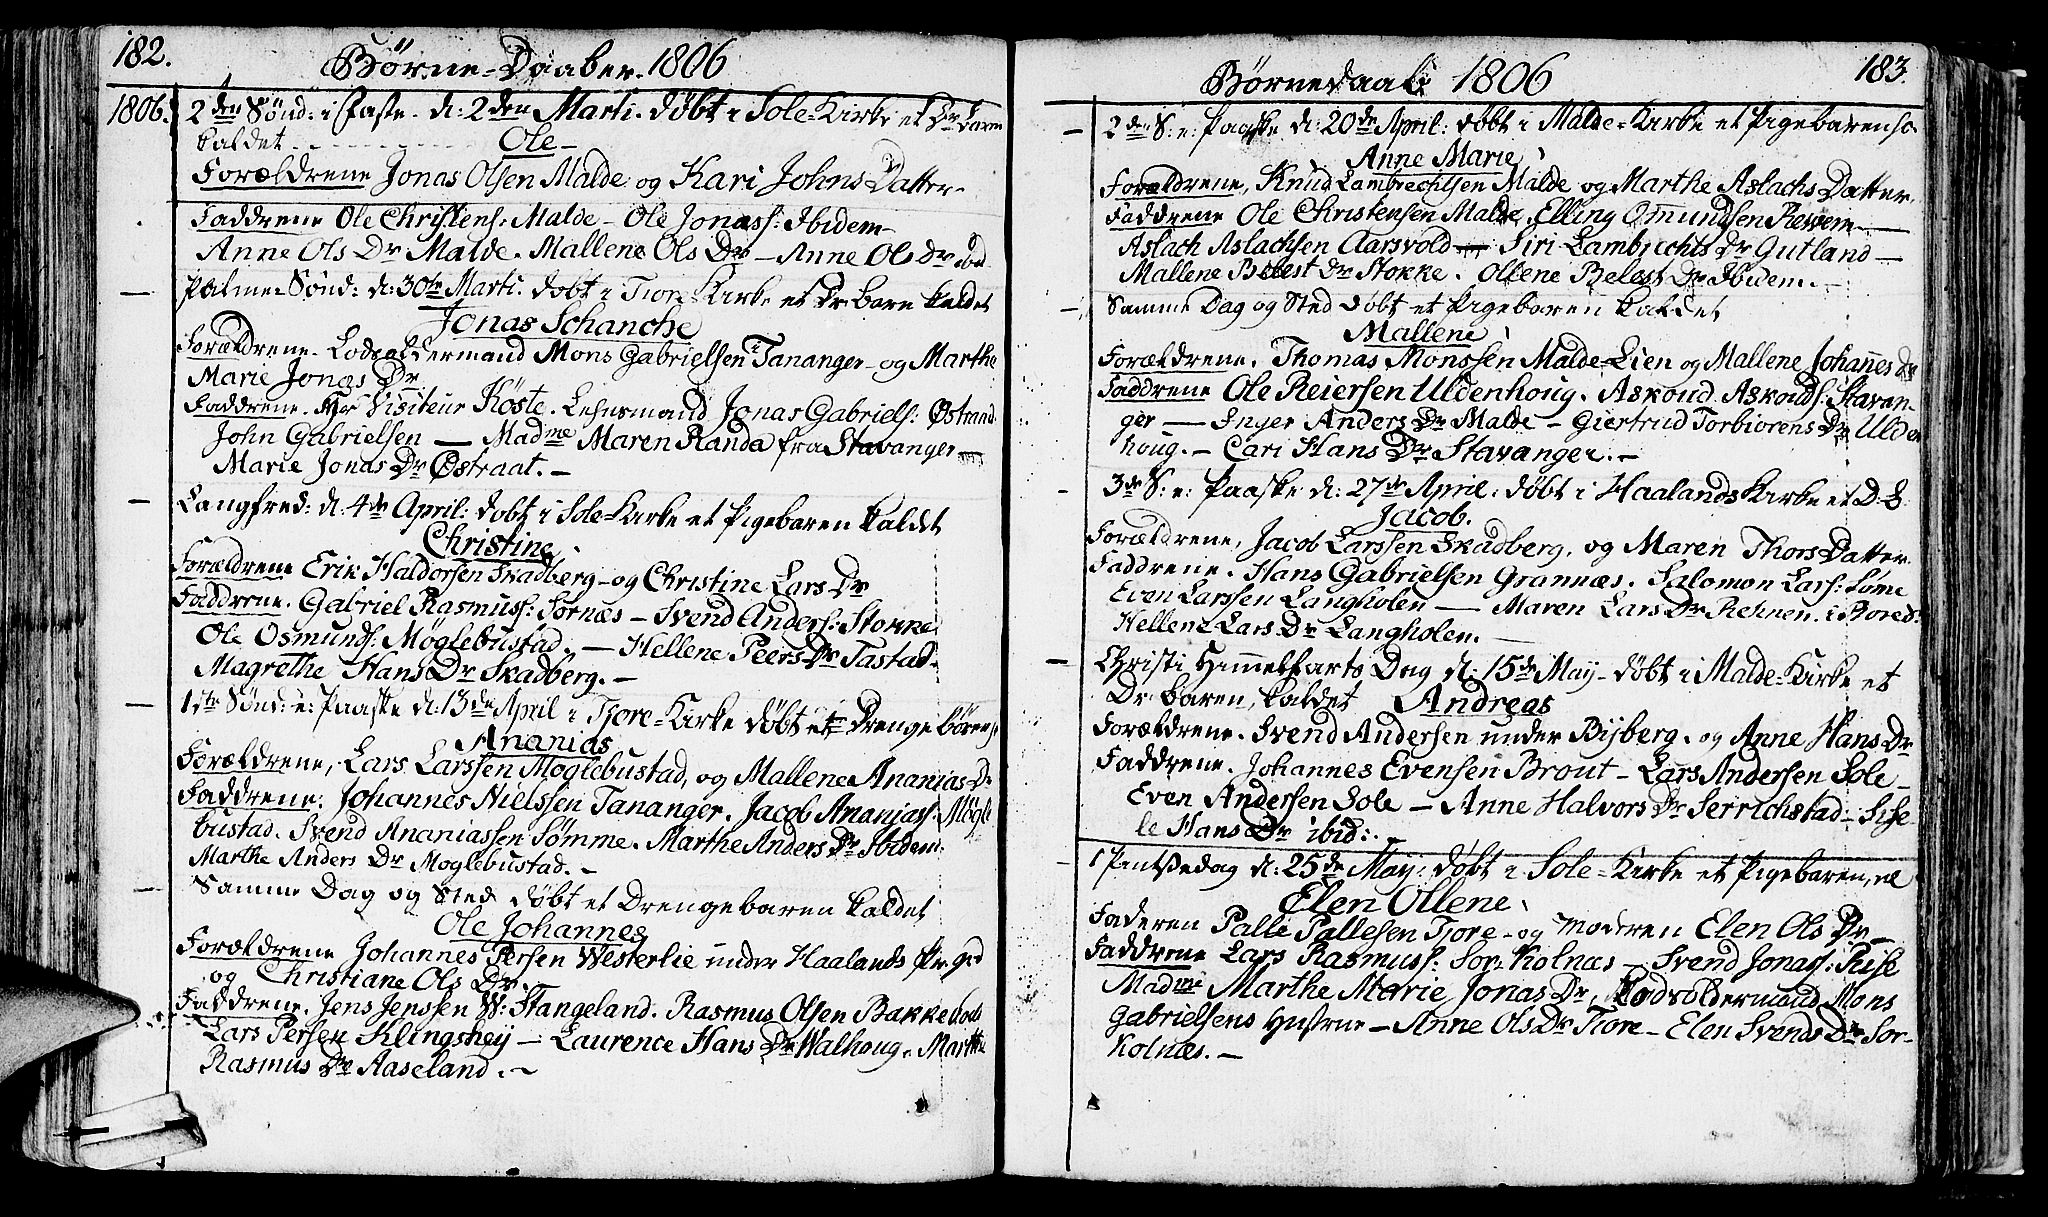 182.
Børne-Daaber. 1806
1806. 2den Sønd: i Faste. d: 2den Marti. døbt i Sole-Kirke et Dr. barn
kaldet - - - - - - - Ole -
Forældrene Jonas Olsen Malde og Kari Johns Datter -
Faddrene Ole Christens: Malde - Ole Jonass: Ibidem -
Anne Ols Dr Malde. Mallene Ols Dr - Anne Ols Dr ibd
Palme-Sønd: d: 30te Marti. døbt i Tjore Kirke et Dr barn kaldet
Jonas Schanche
Forældrene. Lodsoldermand Mons Gabrielsen i Tananger - og Marthe
Marie Jonas Dr
Faddrene. Hr Visiteur Köste. Lehnsmand Jonas Gabriels: Østraad
John Gabrielsen - Madme Maren Randa fra Stavanger -
Marie Jonas Dr Østraat. -
Langfred: d: 4de April: døbt i Sole-Kirke et Pigebaren kaldt
Christine
Forældrene Erik Haldorsen Skadberg - og Christine Lars Dr
Faddrene. Gabriel Rasmuss: Sørnæs - Svend Anders: Stokke
Ole Osmunds: Møglebustad. - Hellene Peers Dr Tastad.
Magrethe Hans Dr Skadberg. -
1ste Sønd: e: Paaske d: 13de April i Tjore-Kirke døbt et Drengebørens
Ananias
Forældrene, Lars Larssen Møglebustad, og Mallene Ananias Dr
Faddrene. Johannes Nielssen Tananger. Jacob Ananiass: Møgle
bustad. Svend Ananiassen Sømme. Marthe Anders Dr Ibidem
Marthe Anders Dr Moglebustad. -
Samme Dag og Sted døbt et Drengebaren kaldet
Ole Johannes
Forældrene Johannes Persen Westerlie under Haalands Pr. gid
og Christiane Ols Dr.
Faddrene. Jens Jenssen W: Stangeland. Rasmus Olsen Bakkehole
Lars Persen Klingshey - Laurence Hans Dr Walhoug. Marthe
Rasmus Dr Aaseland. -
183.
Børnedaab 1806
2den S: e: Paaske d: 20de April: døbt i Malde-Kirke et Pigebaren
Anne Marie
Forældrene, Knud Lambrechtsen Malde og Marthe Aslachs Datter.
Faddrene Ole Christensen Malde. Elling Omundsen Revem -
Aslach Aslachsen Aarsvold - Siri Lambrechts Dr Gutland -
Mallene Belest Dr Stokke. Ollene Belest Dr Ibidem. -
Samme Dag og Sted døbt et Pigebaren kaldet
Mallene
Forældrene. Thomas Monssen Malde-Lien og Mallene Johannes Dr
Faddrene Ole Reiersen Uldenhoug. Askoud Askouds: Stavan-
ger - Inger Anders Dr Malde - Giertrud Torbiorens Dr Ulden
houg. - Cari Hans Dr Stavanger. -
3de S: e: Paaske d: 27de April: døbt i Haalands Kirke et D. B.
Jacob.
Forældrene, Jacob Larssen Skadberg, og Maren Thors Datter.
Faddrene. Hans Gabrielsen Grannæs. Salomon Lars: Søme
Even Larssen Langholen - Maren Lars Dr Rehnen. i Bored:
Hellene Lars Dr Langholen. -
Christi Himmelfarts Dag d: 15de May - døbt i Malde-Kirke et
Dr. baren, kaldet Andreas
Forældrene. Svend Andersen under Bijberg. og Anne Hans Dr
Faddrene. Johannes Evensen Brout - Lars Andersen Sole -
Even Andersen Sole - Anne Halvors Dr Serrichstad - Sise-
le Hans Dr ibid: -
1 Pintsedag d: 25de May: døbt i Sole-Kirke et Pigebaren,
Elen Ollene
Faderen Palle Pallesen Tjore - og Moderen Elen Ols Dr -
Faddrene Lars Rasmuss: Sor. Kolnæs - Svend Jonass: Risе
Madme Marthe Marie Jonas Dr, Lodsoldermand Mons
Gabrielsens Hustrue - Anne Ols Dr Tiore - Elen Svends Dr Sor-
Kolnæs. -